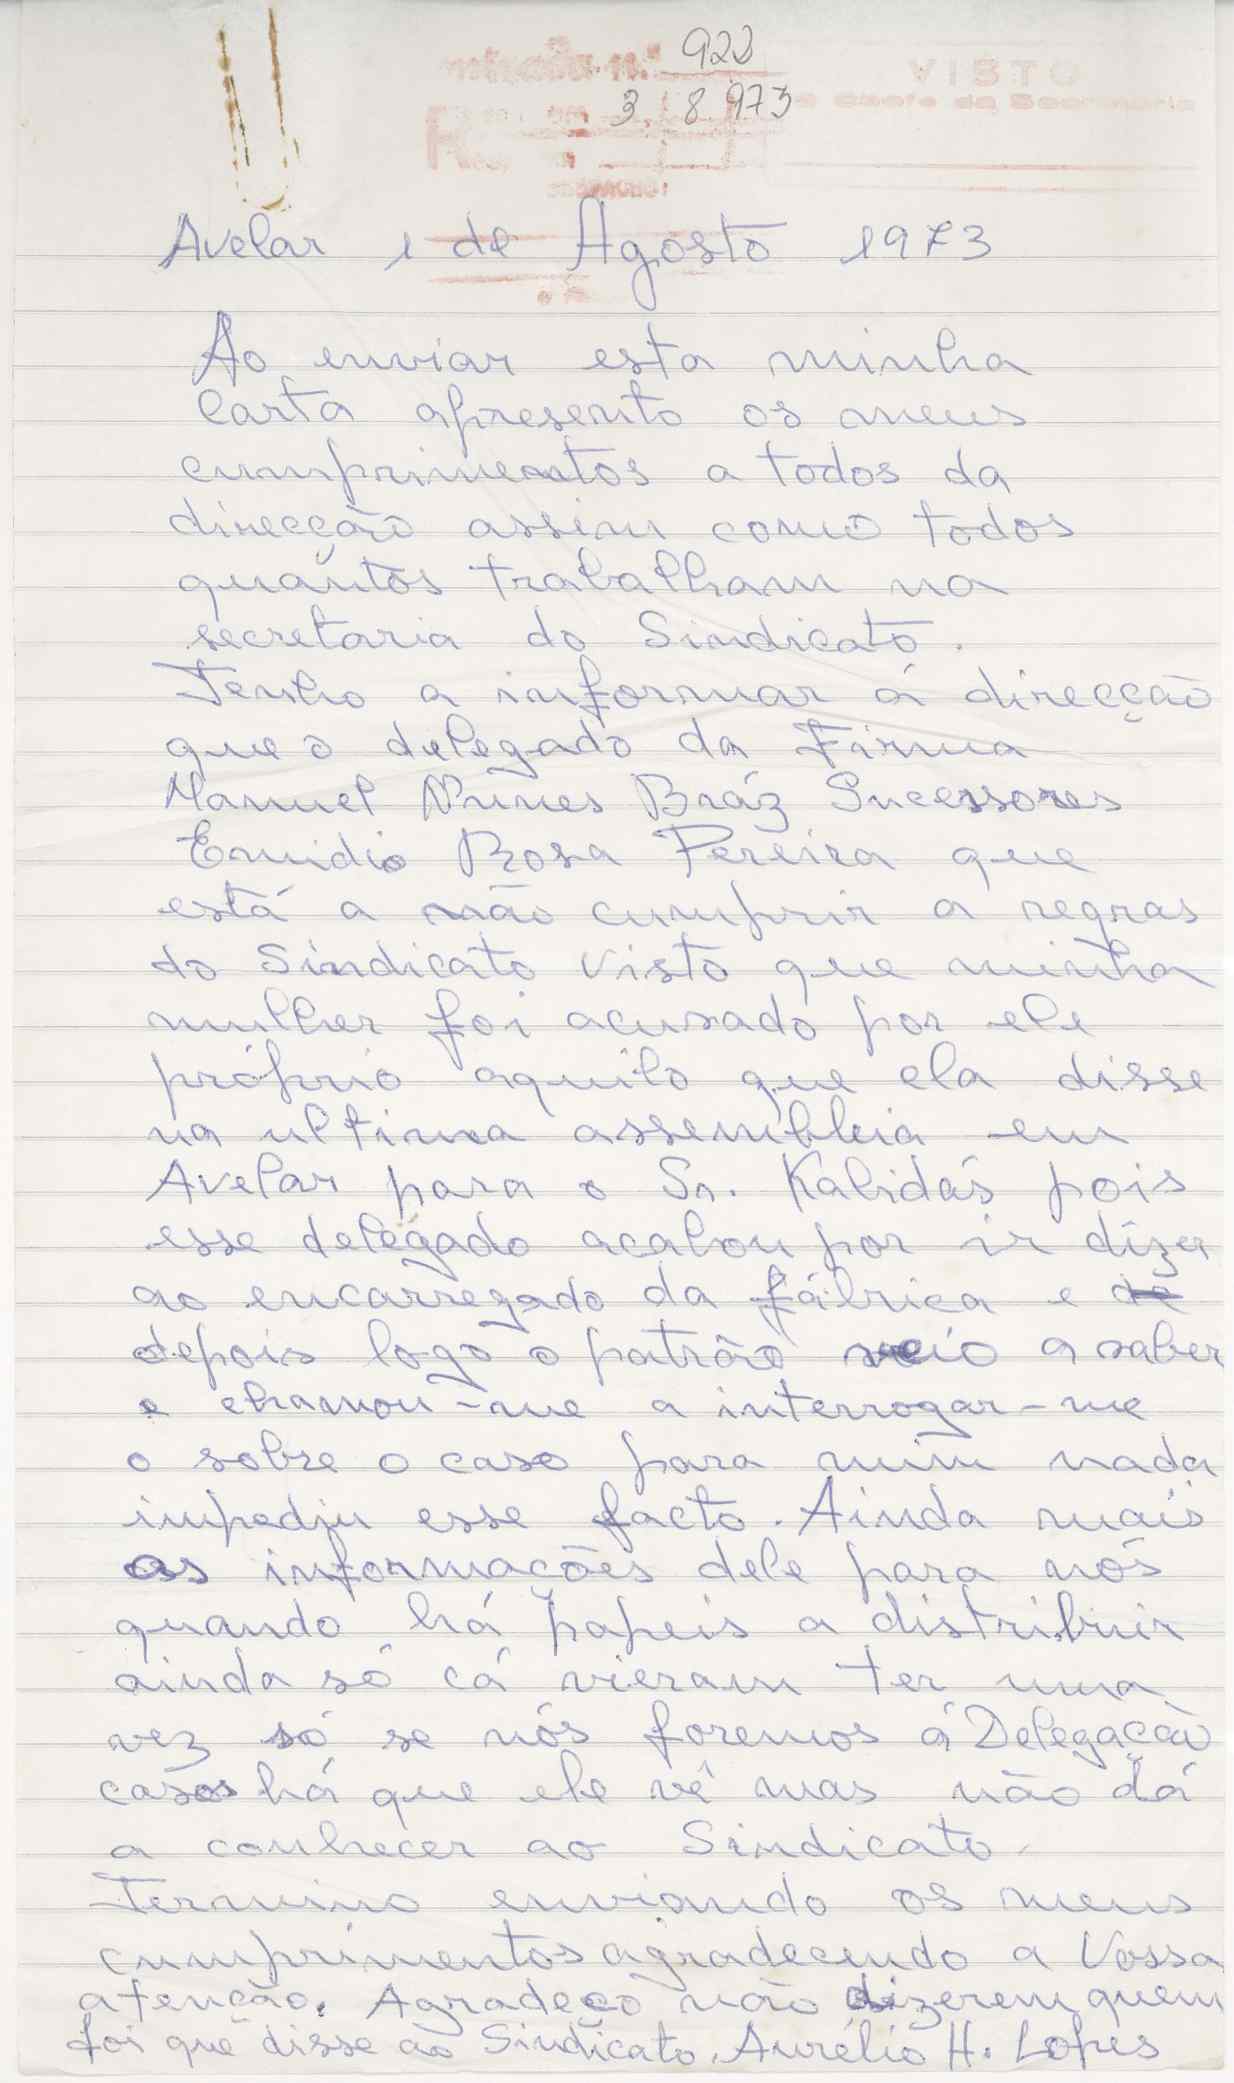 922
3 8 973
VISTO
Avelar 1 de Agosto 1973
Ao enviar esta minha
Carta apresento os meus
cumprimentos a todos da
direcção assim como todos
quantos trabalham na
secretaria do Sindicato.
Tenho a informar á direcção
que o delegado da Firma
Manuel Nunes Bráz Sucessores
Emidio Rosa Pereira que
está a não cumprir a regras
do Sindicato visto que minha
mulher foi acusado por ele
próprio aquilo que ela disse
na ultima assembleia em
Avelar para o Sr. Kalidás pois
esse delegado acabou por ir dizer
ao encarregado da fábrica e de
depois logo o patrão veio a saber
e chamou-me a interrogar-me
o sobre o caso para mim nada
impediu esse facto. Ainda mais
as informações dele para nós
quando há papeis a distribuir
ainda só cá vieram ter uma
vez só se nós foremos á Delegação
casos há que ele vê mas não dá
a conhecer ao Sindicato.
Termino enviando os meus
cumprimentos agradecendo a Vossa
atenção. Agradeço não dizerem quem
foi que disse ao Sindicato. Aurélio H. Lopes